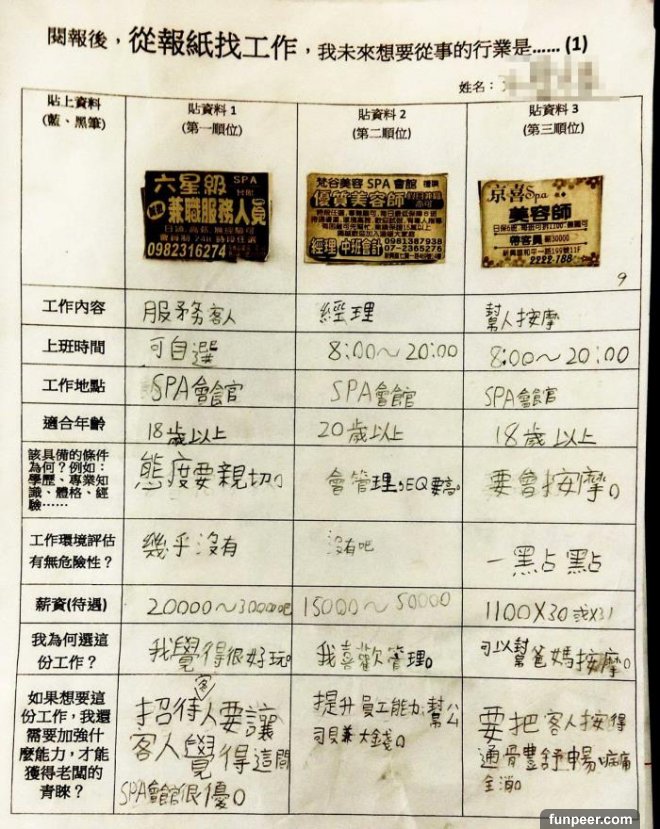 閱報後，從報紙找工作，我未來想要從事的行業是...... (1)
姓名：
貼上資料
(藍、黑筆)
貼資料 1
(第一順位)
貼資料 2
(第二順位)
貼資料 3
(第三順位)
六星級 SPA
兼職服務人員
0982316274
梵谷美容 SPA 會館
優質美容師
經理 中班會計
0981387938
07-2385275
京喜Spa
美容師
帶客員
2222-188
9
工作內容
服務客人
經理
幫人按摩
上班時間
可自選
8:00～20:00
8:00～20:00
工作地點
SPA會館
SPA會館
SPA會館
適合年齡
18歲以上
20歲以上
18歲以上
該具備的條件
為何？例如：
學歷、專業知
識、體格、經
驗……
態度要親切。
會管理，EQ要高。
要會按摩。
工作環境評估
有無危險性？
幾乎沒有
沒有吧
一點點
薪資(待遇)
20000～30000吧
15000～50000
1100X30或X31
我為何選這
份工作？
我覺得很好玩。
我喜歡管理。
可以幫爸媽按摩。
如果想要這
份工作，我還
需要加強什
麼能力，才能
獲得老闆的
青睞？
招待客人要讓
客人覺得這間
SPA會館很優。
提升員工能力，幫公
司賺大錢。
要把客人按得
通體舒暢，病痛
全消。
funpeer.com